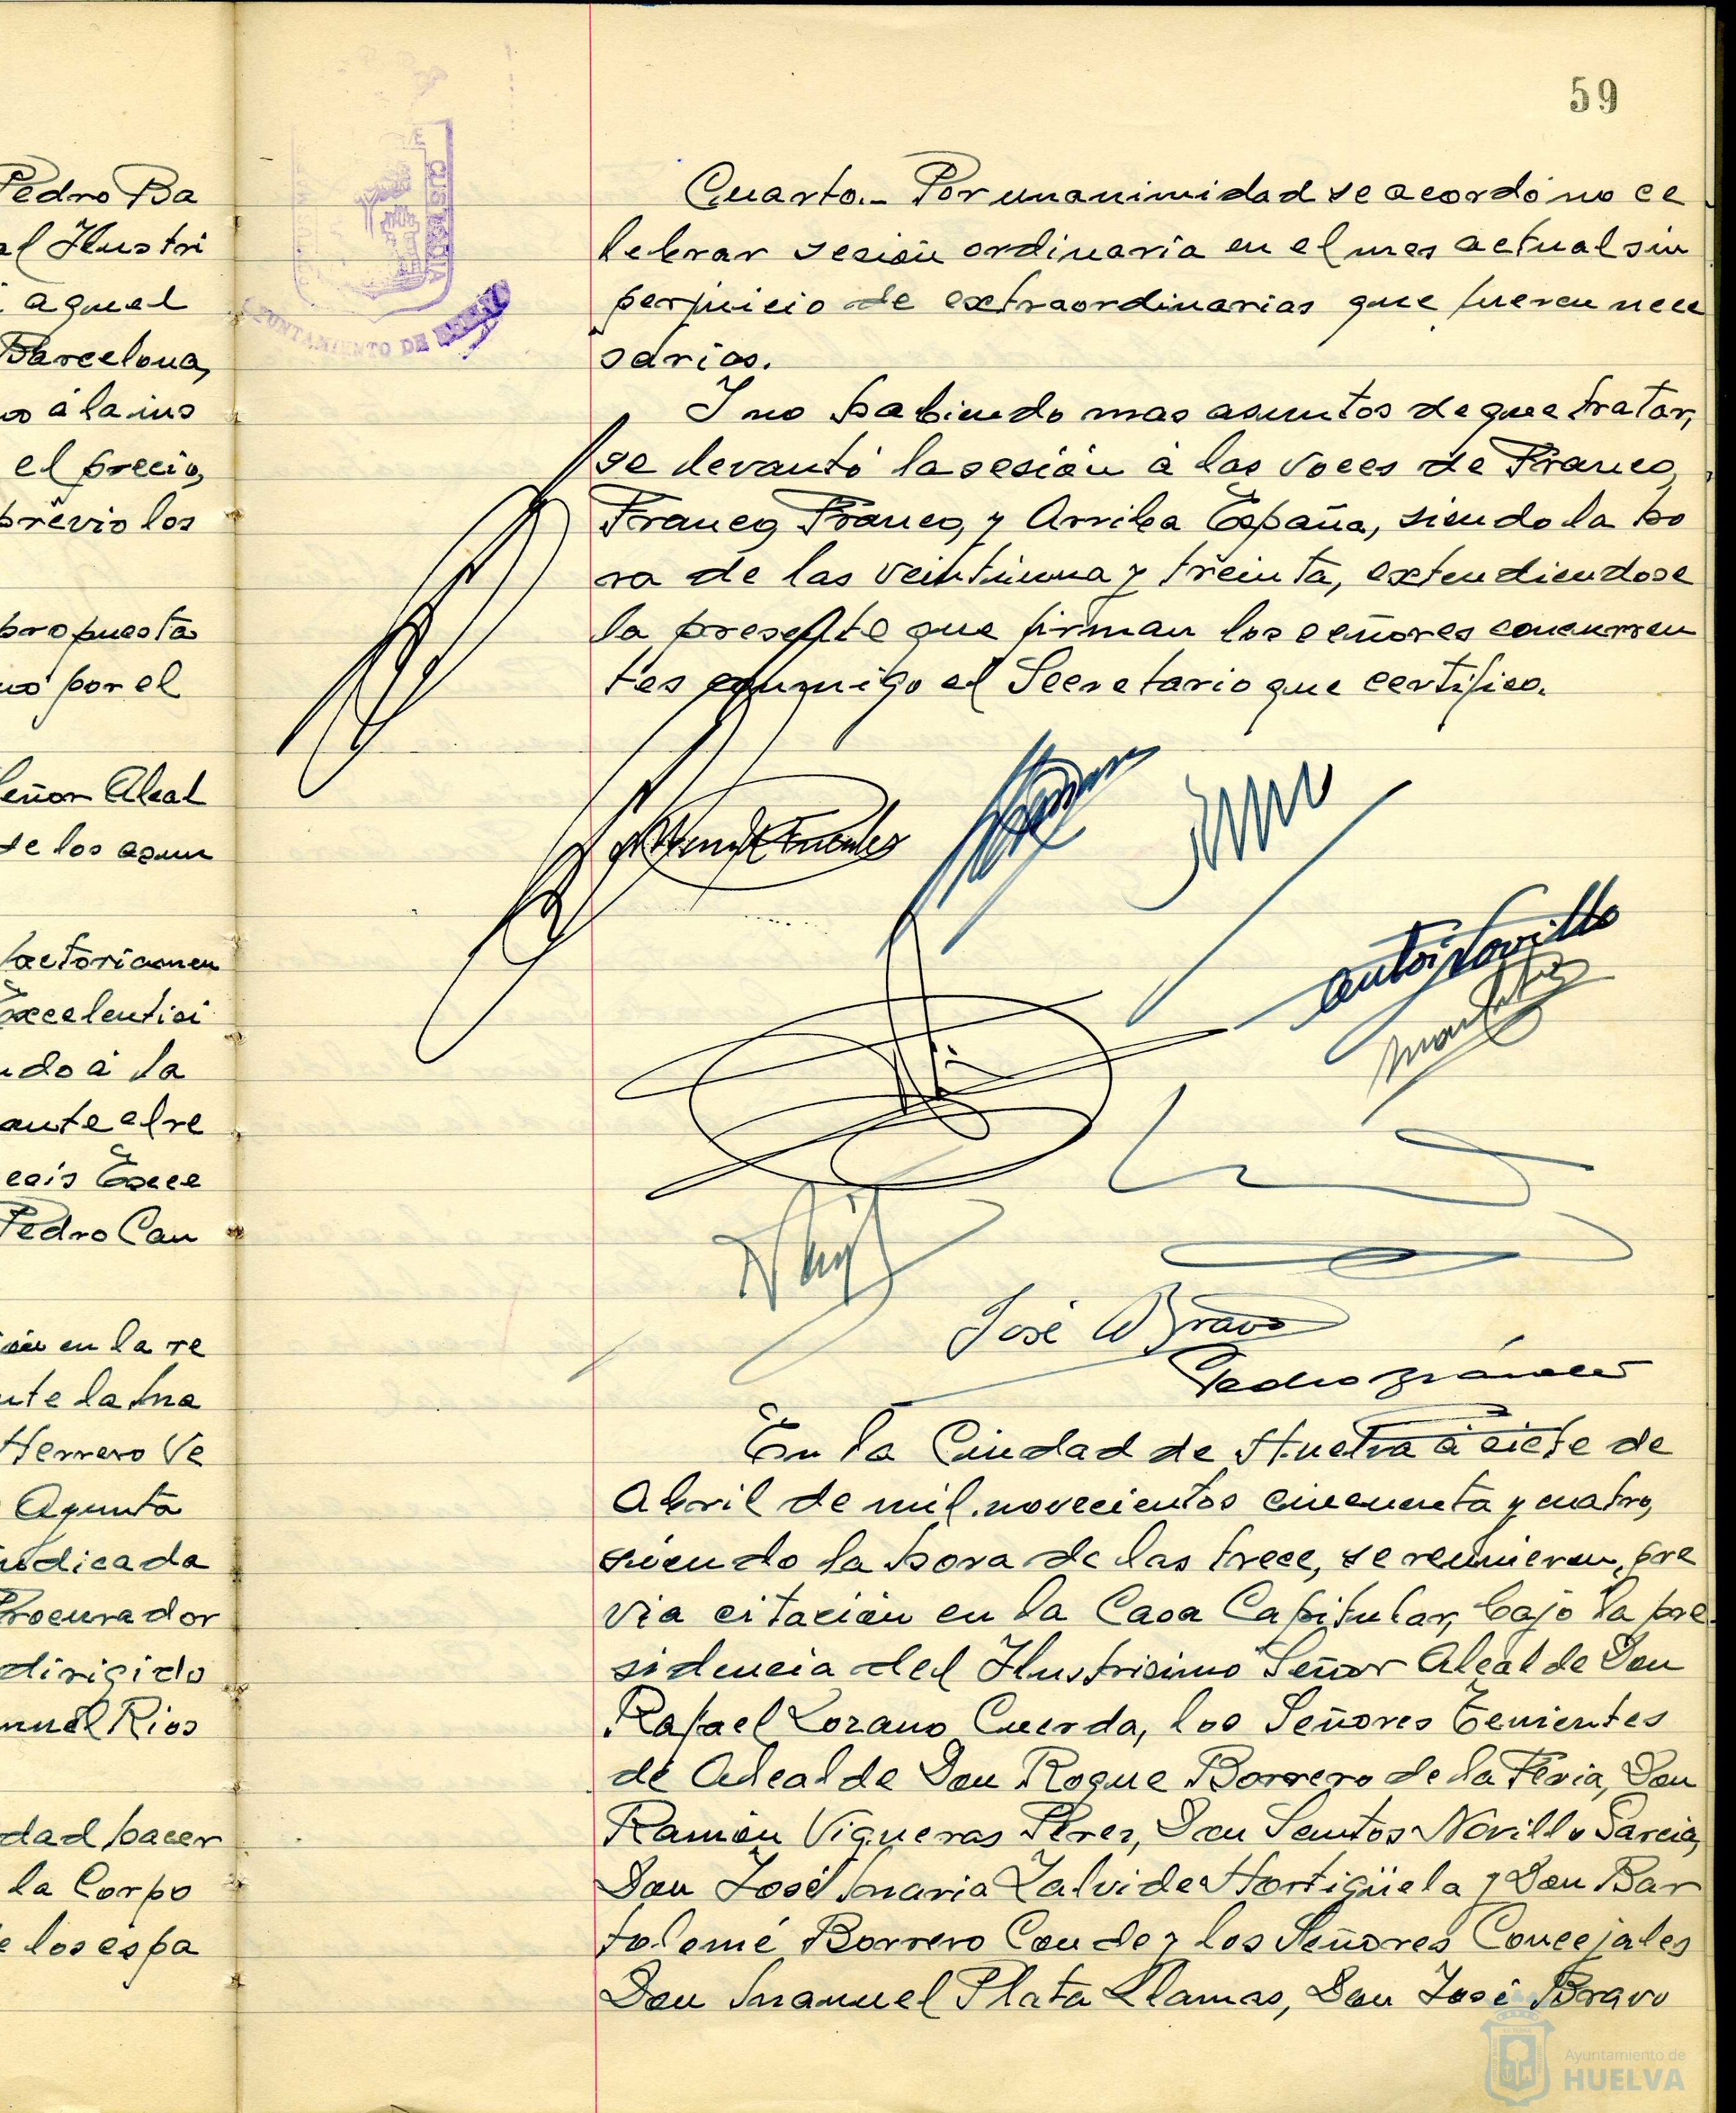 Pedro Ba
al Ilustri
aquel
Barcelona,
á la ins
el precio,
prévio los
propuesta
por el
eñor Alcal
de los asun
factoriamen
Excelentisi
ndo á la
ante el re
Exce
Pedro Can
en la re
nte la Ma
Herrero Ve
Agunta
indicada
Procurador
dirigido
nuel Rios
dad hacer
la Corpo
e los espa
59
AYUNTAMIENTO DE HUELVA
Cuarto.- Por unanimidad se acordó no ce
lebrar sesión ordinaria en el mes actual sin
perjuicio de extraordinarias que fueren nece
sarias.
Y no habiendo mas asuntos de que tratar,
se levantó la sesión á las voces de Franco,
Franco, Franco, y Arriba España, siendo la ho
ra de las veintiuna y treinta, extendiendose
la presente que firman los señores concurren
tes conmigo el Secretario que certifico.
José Bravo
En la Ciudad de Huelva á siete de
Abril de mil novecientos cincuenta y cuatro,
siendo la hora de las trece, se reunieron, pre
via citación en la Casa Capitular, bajo la pre
sidencia del Ilustrisimo Señor Alcalde Don
Rafael Lozano Cuerda, los Señores Tenientes
de Alcalde Don Roque Borrero de la Feria, Don
Ramón Vigueras Pérez, Don Santos Novillo Garcia,
Don José Maria Zalvide Hortigüela y Don Bar
tolomé Borrero Conde y los Señores Concejales
Don Manuel Plata Llamas, Don José Bravo
Ayuntamiento de
HUELVA